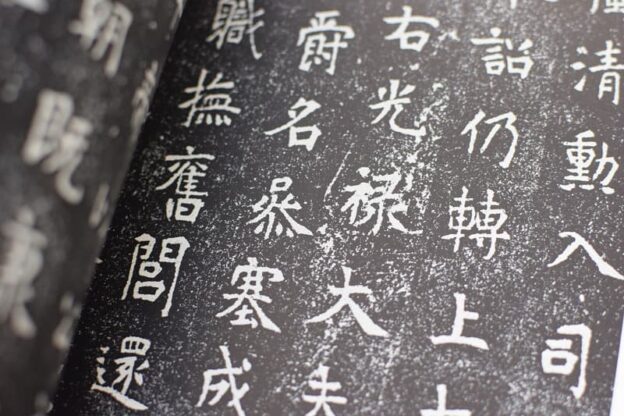 清勳入司
詔仍轉上
右光禄大夫
爵名塞成
職撫舊閭還
朝既